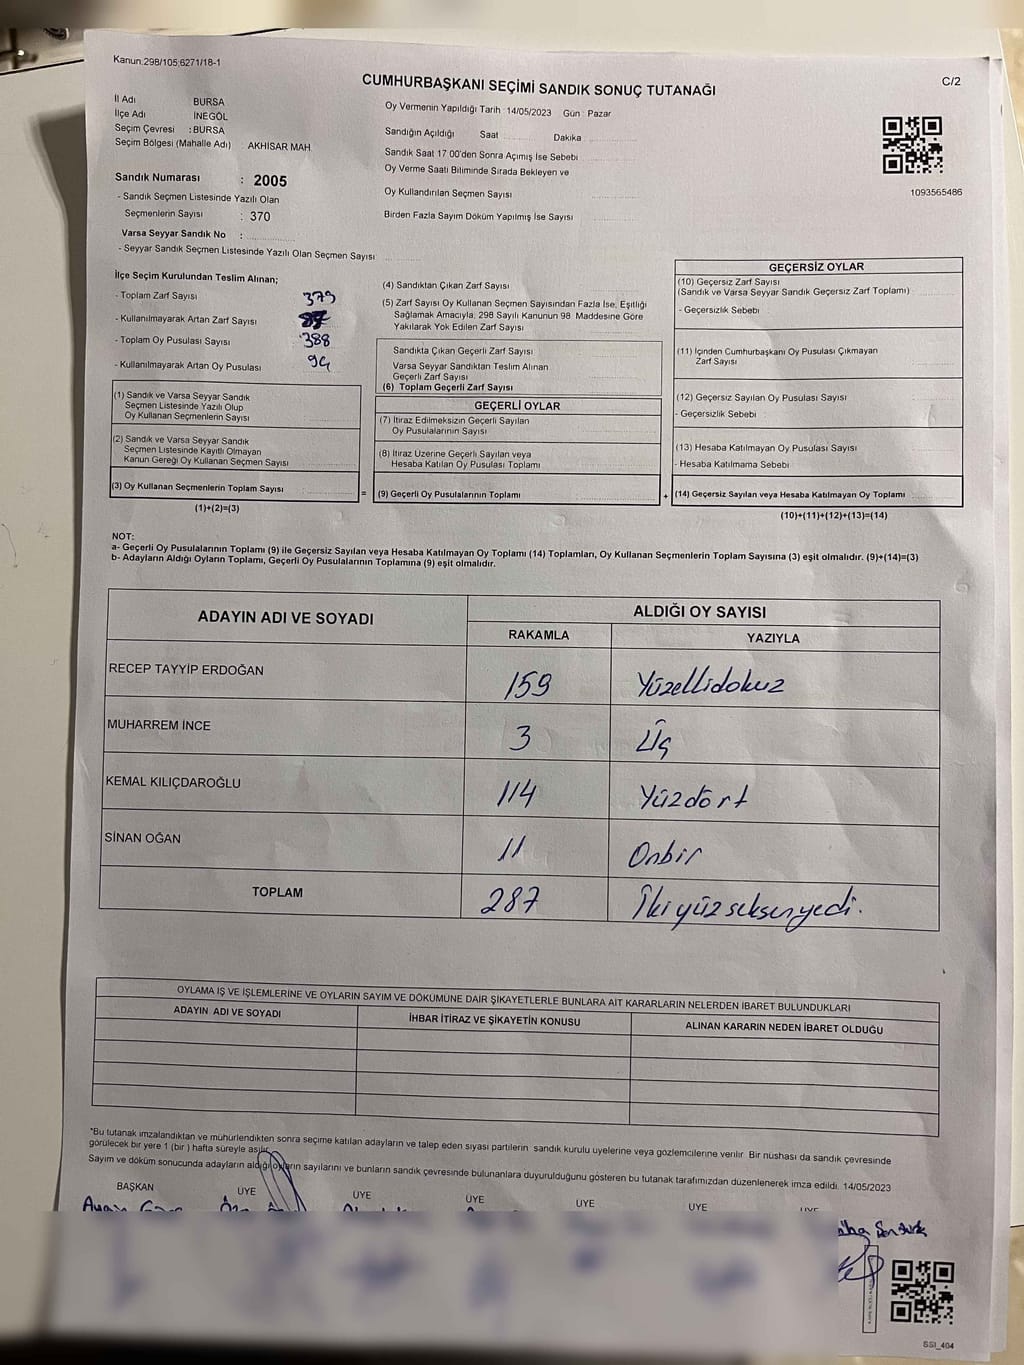 Kanun.298/105;6271/18-1
C/2
CUMHURBAŞKANI SEÇİMİ SANDIK SONUÇ TUTANAĞI
İl Adı BURSA
İlçe Adı İNEGÖL
Seçim Çevresi : BURSA
Seçim Bölgesi (Mahalle Adı) AKHİSAR MAH.
Sandık Numarası : 2005
- Sandık Seçmen Listesinde Yazılı Olan
Seçmenlerin Sayısı : 370
Varsa Seyyar Sandık No :
- Seyyar Sandık Seçmen Listesinde Yazılı Olan Seçmen Sayısı
Oy Vermenin Yapıldığı Tarih 14/05/2023 Gün : Pazar
Sandığın Açıldığı Saat Dakika
Sandık Saat 17 00'den Sonra Açımış İse Sebebi
Oy Verme Saati Bitiminde Sırada Bekleyen ve
Oy Kullandırılan Seçmen Sayısı
Birden Fazla Sayım Döküm Yapılmış İse Sayısı
1093565486
İlçe Seçim Kurulundan Teslim Alınan;
- Toplam Zarf Sayısı 379
- Kullanılmayarak Artan Zarf Sayısı
- Toplam Oy Pusulası Sayısı 388
- Kullanılmayarak Artan Oy Pusulası
(1) Sandık ve Varsa Seyyar Sandık
Seçmen Listesinde Yazılı Olup
Oy Kullanan Seçmenlerin Sayısı
(2) Sandık ve Varsa Seyyar Sandık
Seçmen Listesinde Kayıtlı Olmayan
Kanun Gereği Oy Kullanan Seçmen Sayısı
(3) Oy Kullanan Seçmenlerin Toplam Sayısı
(1)+(2)=(3)
=
(4) Sandıktan Çıkan Zarf Sayısı
(5) Zarf Sayısı Oy Kullanan Seçmen Sayısından Fazla İse, Eşitliği
Sağlamak Amacıyla, 298 Sayılı Kanunun 98 Maddesine Göre
Yakılarak Yok Edilen Zarf Sayısı
Sandıkta Çıkan Geçerli Zarf Sayısı
Varsa Seyyar Sandıktan Teslim Alınan
Geçerli Zarf Sayısı
(6) Toplam Geçerli Zarf Sayısı
GEÇERLİ OYLAR
(7) İtiraz Edilmeksizin Geçerli Sayılan
Oy Pusulalarının Sayısı
(8) İtiraz Üzerine Geçerli Sayılan veya
Hesaba Katılan Oy Pusulası Toplamı
(9) Geçerli Oy Pusulalarının Toplamı
+
GEÇERSİZ OYLAR
(10) Geçersiz Zarf Sayısı
(Sandık ve Varsa Seyyar Sandık Geçersiz Zarf Toplamı)
- Geçersizlik Sebebi
(11) İçinden Cumhurbaşkanı Oy Pusulası Çıkmayan
Zarf Sayısı
(12) Geçersiz Sayılan Oy Pusulası Sayısı
- Geçersizlik Sebebi
(13) Hesaba Katılmayan Oy Pusulası Sayısı
- Hesaba Katılmama Sebebi
(14) Geçersiz Sayılan veya Hesaba Katılmayan Oy Toplamı
(10)+(11)+(12)+(13)=(14)
NOT:
a- Geçerli Oy Pusulalarının Toplamı (9) ile Geçersiz Sayılan veya Hesaba Katılmayan Oy Toplamı (14) Toplamları, Oy Kullanan Seçmenlerin Toplam Sayısına (3) eşit olmalıdır. (9)+(14)=(3)
b- Adayların Aldığı Oyların Toplamı, Geçerli Oy Pusulalarının Toplamına (9) eşit olmalıdır.
ADAYIN ADI VE SOYADI ALDIĞI OY SAYISI
RAKAMLA YAZIYLA
RECEP TAYYİP ERDOĞAN 159 Yüzellidokuz
MUHARREM İNCE 3 Üç
KEMAL KILIÇDAROĞLU 114 Yüzdört
SİNAN OĞAN 11 Onbir
TOPLAM 287 İkiyüzseksenyedi.
OYLAMA İŞ VE İŞLEMLERİNE VE OYLARIN SAYIM VE DÖKÜMÜNE DAİR ŞİKAYETLERLE BUNLARA AİT KARARLARIN NELERDEN İBARET BULUNDUKLARI
ADAYIN ADI VE SOYADI İHBAR İTİRAZ VE ŞİKAYETİN KONUSU ALINAN KARARIN NEDEN İBARET OLDUĞU
*Bu tutanak imzalandıktan ve mühürlendikten sonra seçime katılan adayların ve talep eden siyasi partilerin sandık kurulu üyelerine veya gözlemcilerine verilir Bir nüshası da sandık çevresinde
görülecek bir yere 1 (bir ) hafta süreyle asılır.
Sayım ve döküm sonucunda adayların aldığı oyların sayılarını ve bunların sandık çevresinde bulunanlara duyurulduğunu gösteren bu tutanak tarafımızdan düzenlenerek imza edildi. 14/05/2023
BAŞKAN ÜYE ÜYE ÜYE ÜYE ÜYE ÜYE
SSI_404